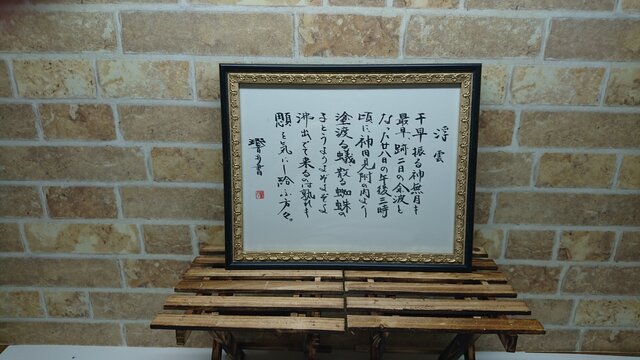 浮雲
千早振る神無月も
最早跡二日の余波と
なった廿八日の午後三時
頃に神田見附の内より
塗渡る蟻、散る蜘蛛の
子とうようよぞよぞよ
沸出でて来るのは、孰れも
顋を気にし給ふ方々。